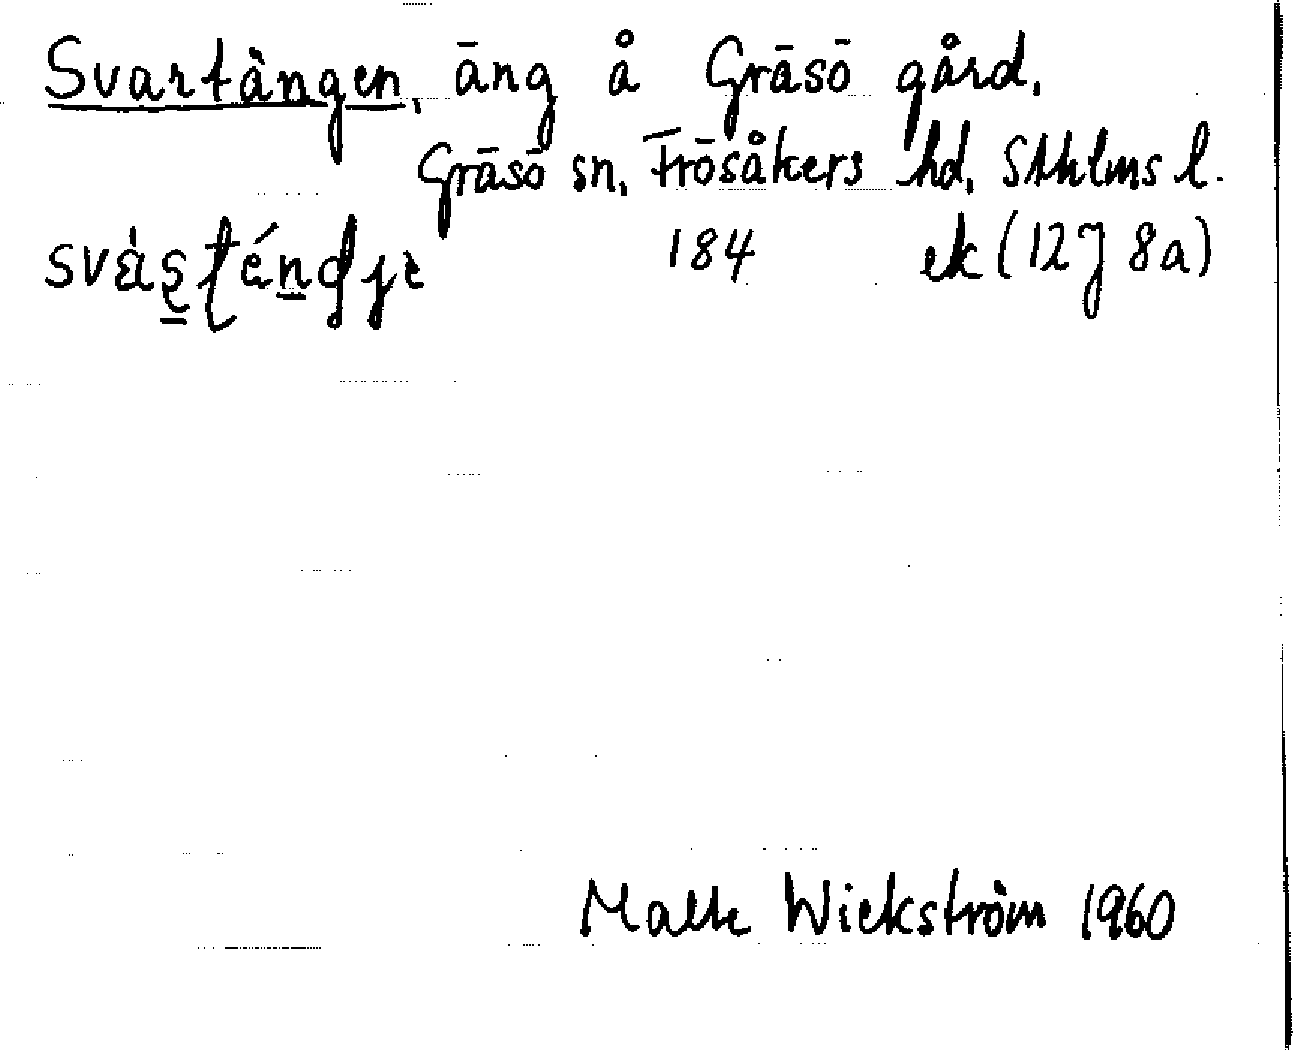 Svartängen, äng å Gräsö gård,
Gräsö sn, Frösåkers hd, Sthlms l.
184 ek (12J 8a)
Malte Wickström 1960